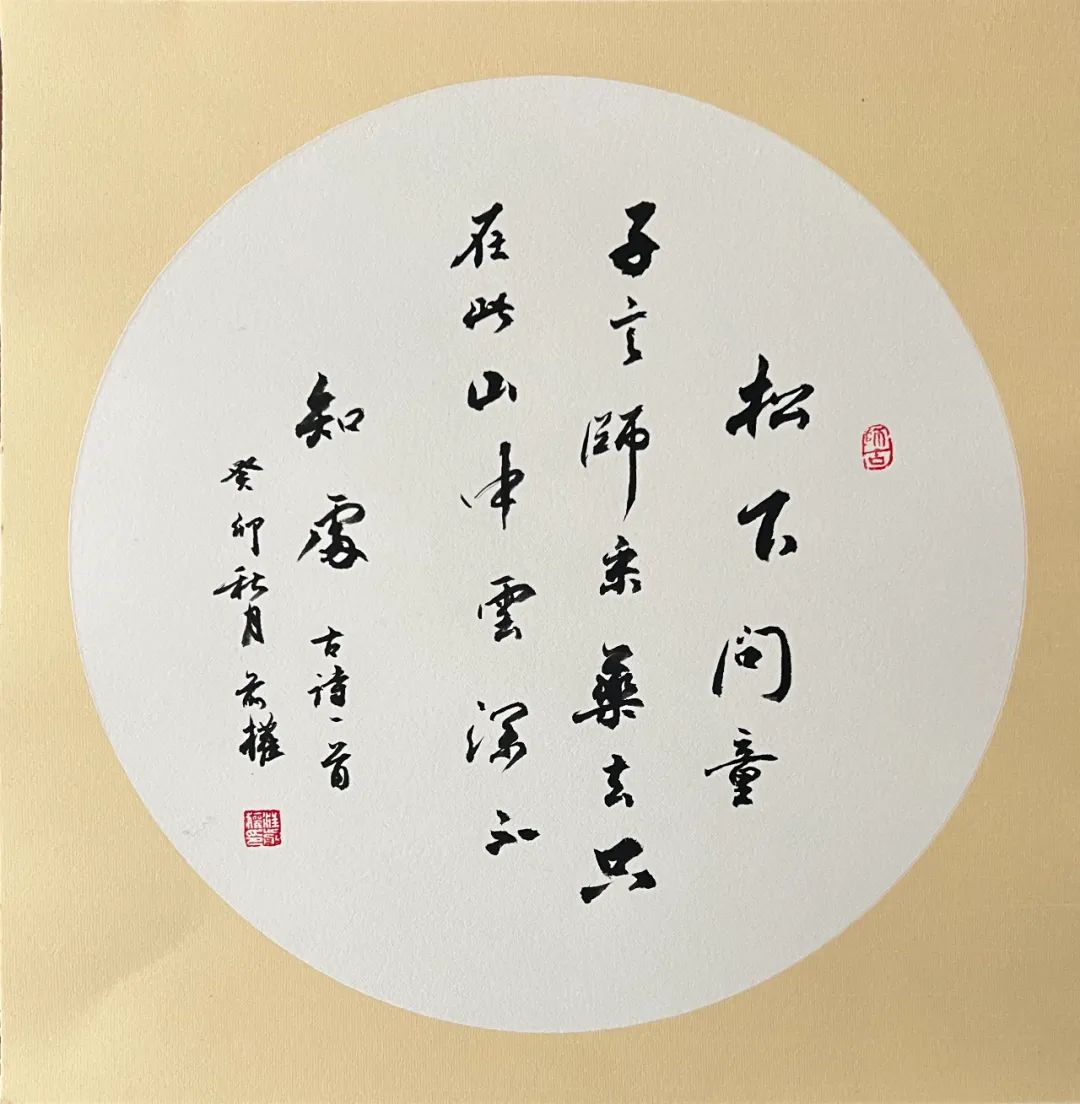 松下问童
子言師采藥去只
在此山中雲深不
知處 古詩一首
癸卯秋月 前權
師古